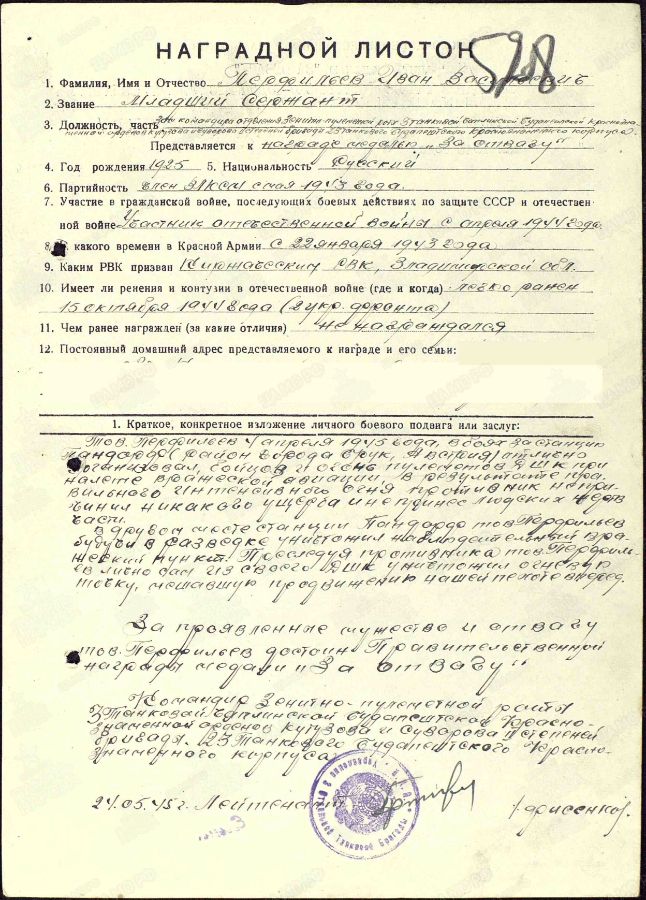 НАГРАДНОЙ ЛИСТОК
1. Фамилия, Имя и Отчество Перфильев Иван Васильевич
2. Звание Младший Сержант
3. Должность, часть Зам командира отделения зенитно пулеметной роты 3 танковой
Представляется к награде медалью „За отвагу"
4. Год рождения 1925 5. Национальность Русский
6. Партийность член ВЛКСМ с мая 1943 года.
7. Участие в гражданской войне, последующих боевых действиях по защите СССР и отечествен-
ной войне Участник отечественной войны с апреля 1944 года
8. какого времени в Красной Армии с 22 января 1943 года
9. Каким РВК призван Киржачским РВК, Владимирской обл.
10. Имеет ли ренения и контузии в отечественной войне (где и когда) легко ранен
15 октября 1944 года (2 укр. фронта)
11. Чем ранее награжден (за какие отличия) не награждался
12. Постоянный домашний адрес представляемого к награде и его семьи:
1. Краткое, конкретное изложение личного боевого подвига или заслуг:
Тов. Перфильев апреля 1945 года, в боях за станцию
Пандорф (район города Брук, Австрия) отлично
организовал, бойцов и огонь пулеметов ДШК при
налете вражеской авиации. В результате пра-
вильного интенсивного огня противник не при-
чинил никакого ущерба и не принес людских жертв
части.
В другом месте станции Пандорф тов. Перфильев
будучи в разведке уничтожил наблюдательный вра-
жеский пункт. Преследуя противника тов. Перфиль-
ев лично сам из своего ДШК уничтожил огневую
точку, мешавшую продвижению нашей пехоте вперед.
За проявленные мужество и отвагу
тов. Перфильев достоин Правительственной
награды медали „За отвагу"
Командир Зенитно-пулеметной роты
3 Танковой Чаплинской Будапештской Красно-
знаменной орденов Кутузова и Суворова II степеней
бригады. 23 Танкового Будапештского Красно-
знаменного корпуса
24.05.45 г. Лейтенант